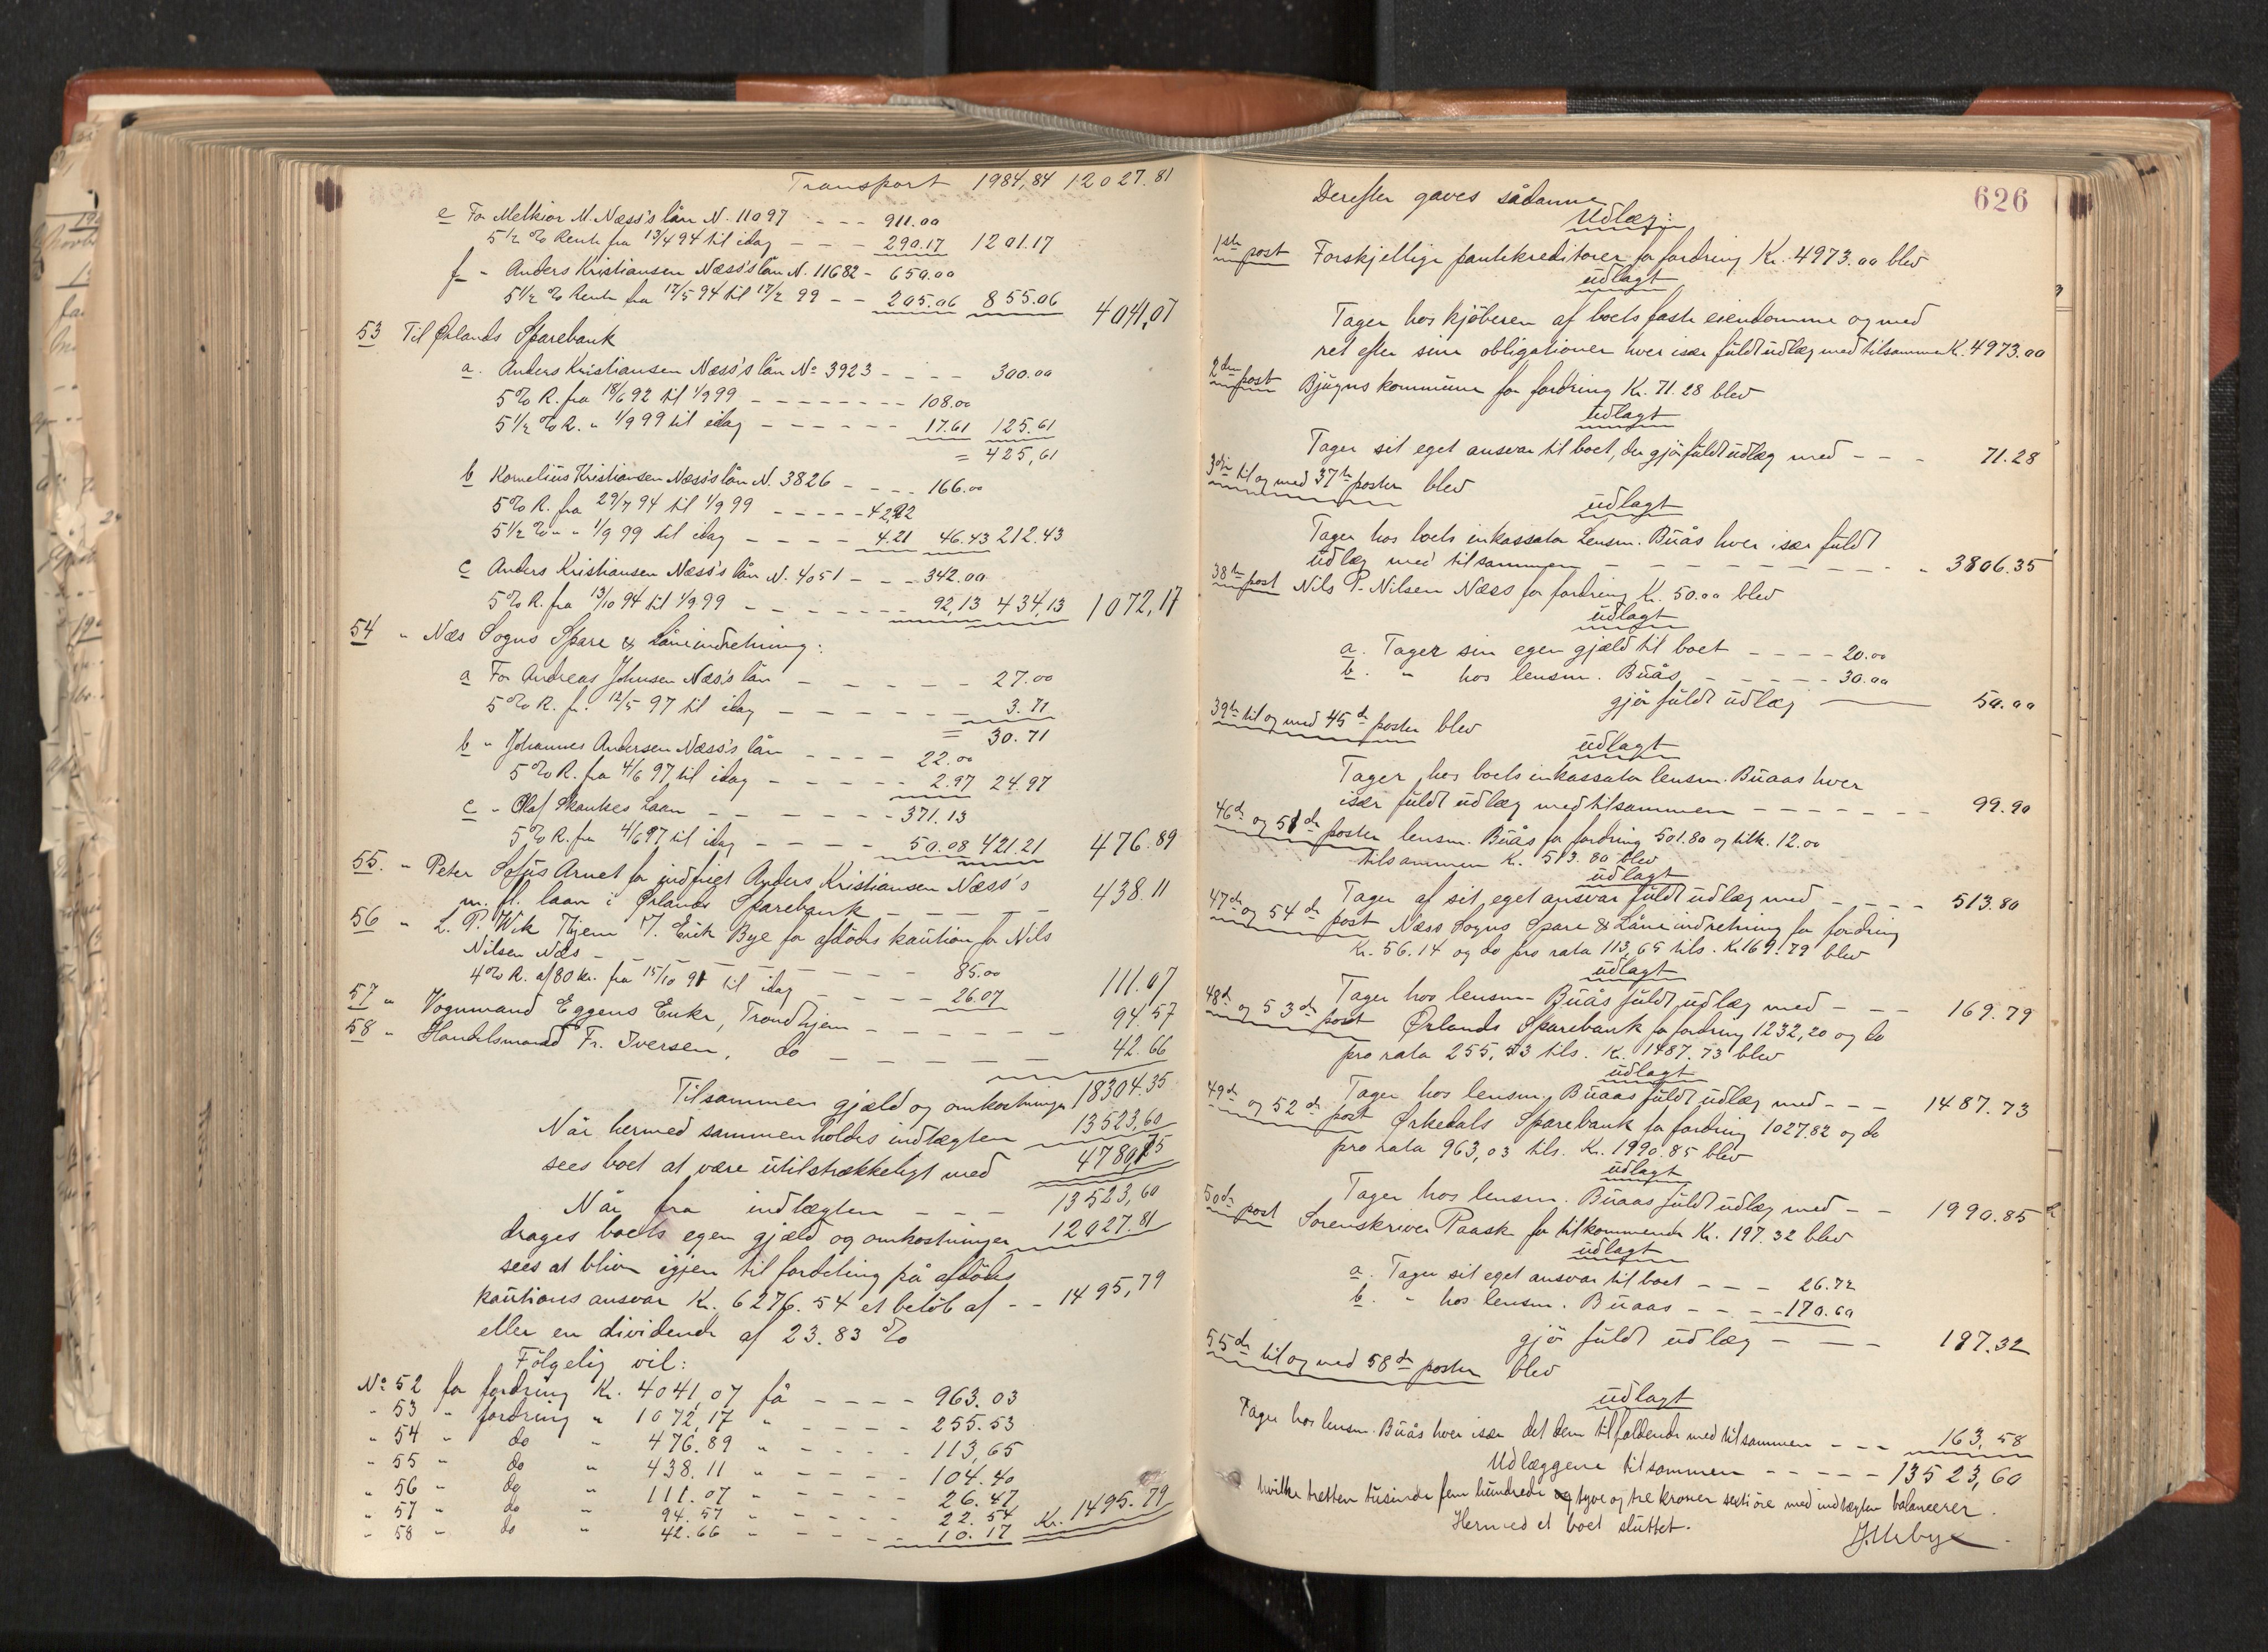 Transport 1984,84 12027.81
e For Melkior M. Næss's lån N. 11097 - - - 911.00
5½ % Rente fra 13/4 94 til idag - - - 290.17 1201.17
f " Anders Kristiansen Næss's lån N. 11682 - 650.00
5½ % Rente fra 17/5 94 til 17/2 99 - - 205.06 855.06 4041,07
53 Til Ørlands Sparebank
a. Anders Kristiansen Næss's lån No 3923 - - - - 300.00
5 % R. fra 18/6 92 til 1/9 99 - - - - - - - - 108.00
5½ % R. " 1/9 99 til idag - - - - - - 17.61 125.61
= 425,61
b Kornelius Kristiansen Næss's lån N. 3826 - - - - 166.00
5 % R. fra 29/7 94 til 1/9 99 - - - - - 42,22
5½ % " " 1/9 99 til idag - - - - 4.21 46.43 212.43
c Anders Kristiansen Næss's lån N. 4051 - - - 342.00
5 % R. fra 13/10 94 til 1/9 99 - - - - - - - 92,13 434,13 1072,17
54 " Næs Sogns Spare & Låneindretning:
a For Andreas Johnsen Næs's lån - - - - - - 27.00
5 % R. fr. 12/5 97 til idag - - - - - - - 3.71
= 30.71
b " Johannes Andersen Næss's lån - - - - 22.00
5 % R. fra 4/6 97 til idag - - - - - - 2.97 24.97
c " Olaf Skankes Laan - - - - - - - 371.13
5 % R. fra 4/6 97 til idag - - - - 50.08 421.21 476.89
55. " Peter Sefus Arnet for indfriet Anders Kristiansen Næss's
m. fl. laan i Ørlands Sparebank - - - - - 438.11
56 " L. P. Wik Thjem T. Erik Bye for afdødes kaution for Nils
Nilsen Næs - - - - - - - - 85.00
4 % R. af 80 kr. fra 15/10 91 til idag - - - - 26.07 111.07
57 " Vognmand Eggens Enke, Trondhjem - - - - - - 94.57
58 " Handelsmand Fr. Iversen, do - - - - - - 42.66
Tilsammen gjæld og omkostninger 18304.35
Når hermed sammenholdes indtægten 13523,60
sees boet at være utilstrækkeligt med 4780,75
Når fra indtægten - - - 13523,60
drages boets egen gjæld og omkostninger 12027.81
sees at blive igjen til fordeling på afdødes
kautions ansvar Kr. 6276.54 et beløb af - - 1495,79
eller en dividende af 23.83 %
Følgelig vil:
No 52 for fordring Kr. 4041,07 få - - - - 963.03
" 53 " fordring " 1072,17 " - - - - - 255.53
" 54 " do " 476.89 " - - - - - 113,65
" 55 " do " 438.11 " - - - - - 104.40
" 56 " do " 111.07 " - - - - - 26.47
" 57 " do " 94.57 " - - - - - 22.54
" 58 " do " 42.66 " - - - - - 10.17 Kr. 1495.79
626
Derefter gaves sådanne
Udlæg:
1ste post Forskjellige pantekreditorer for fordring Kr. 4973.00 blev
udlagt
Tager hos kjøberen af boets faste eiendomme og med
ret efter sine obligationer hver især fuldt udlæg med tilsammen K. 4973.00
2den post Bjugns kommune for fordring Kr. 71.28 blev
udlagt
Tager sit eget ansvar til boet, der gjør fuldt udlæg med - - - 71.28
3die til og med 37te poster blev
udlagt
Tager hos boets inkassator Lensm. Buås hver især fuldt
udlæg med tilsammen - - - - - - - - - " 3806.35
38te post Nils P. Nilsen Næss for fordring Kr. 50.00 blev
udlagt
a. Tager sin egen gjæld til boet - - - - 20.00
b. " hos lensm. Buås - - - - - 30.00
gjør fuldt udlæg — 50.00
39te til og med 45de poster blev
udlagt
Tager hos boets inkassator lensm. Buaas hver
især fuldt udlæg med tilsammen - - - - - - 99.90
46de og 51de poster lensm. Buås for fordring 501.80 og tilk. 12.00
tilsammen Kr. 513.80 blev
udlagt
Tager af sit eget ansvar fuldt udlæg med - - - - 513.80
47de og 54de post Næss Sogns Spare & Låneindretning for fordring
Kr. 56.14 og do pro rata 113,65 tils. Kr 169.79 blev
udlagt
Tager hos lensm. Buås fuldt udlæg med - - - 169.79
48de og 53de post Ørlands Sparebank for fordring 1232,20 og do
pro rata 255,53 tils. Kr. 1487.73 blev
udlagt
Tager hos lensm. Buaas fuldt udlæg med - - - 1487.73
49de og 52de post Ørkedals Sparebank for fordring 1027.82 og do
pro rata 963,03 tils. Kr. 1990.85 blev
udlagt
Tager hos lensm. Buaas fuldt udlæg med - - 1990.85
50de post Sorenskriver Paaske for tilkommende Kr. 197.32 blev
udlagt
a. Tager sit eget ansvar til boet - - - 26.72
b. " hos lensm. Buaas - - - - 170.60
gjør fuldt udlæg - - - 197.32
55de til og med 58de poster blev
udlagt
Tager hos lensm. Buås hver især det dem tilfaldende med tilsammen - - - 163,58
Udlæggene tilsammen - - - - - 13523,60
hvilke tretten tusinde fem hundrede og tyve og tre kroner sexti øre med indtægten balancerer.
Hermed et boet sluttet.